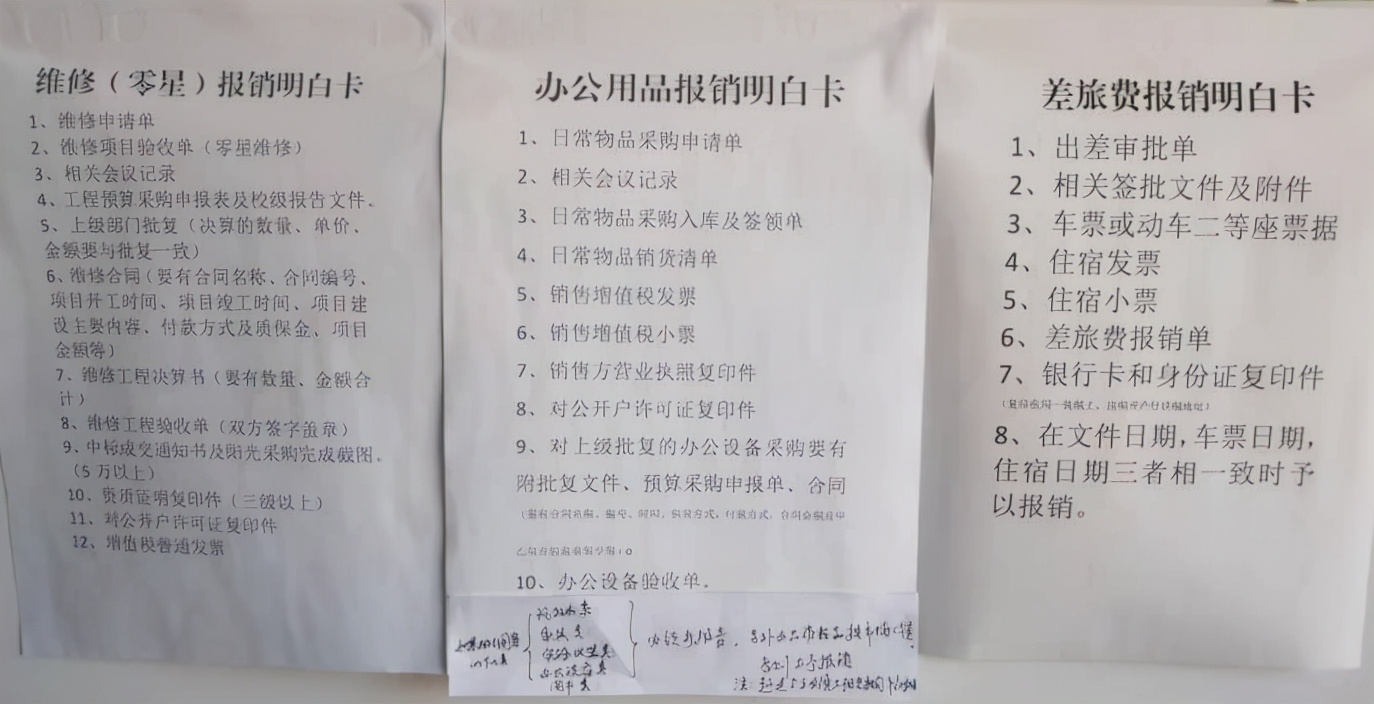 维修（零星）报销明白卡
1、维修申请单
2、维修项目验收单（零星维修）
3、相关会议记录
4、工程预算采购申报表及校级报告文件。
5、上级部门批复（决算的数量、单价、
金额要与批复一致）
6、维修合同（要有合同名称、合同编号、
项目开工时间、项目竣工时间、项目建
设主要内容、付款方式及质保金、项目
金额等）
7、维修工程决算书（要有数量、金额合
计）
8、维修工程验收单（双方签字盖章）
9、中标成交通知书及阳光采购完成截图。
（5万以上）
10、资质证明复印件（三级以上）
11、对公开户许可证复印件
12、增值税普通发票
办公用品报销明白卡
1、日常物品采购申请单
2、相关会议记录
3、日常物品采购入库及签领单
4、日常物品销货清单
5、销售增值税发票
6、销售增值税小票
7、销售方营业执照复印件
8、对公开户许可证复印件
9、对上级批复的办公设备采购要有
附批复文件、预算采购申报单、合同
10、办公设备验收单。
差旅费报销明白卡
1、出差审批单
2、相关签批文件及附件
3、车票或动车二等座票据
4、住宿发票
5、住宿小票
6、差旅费报销单
7、银行卡和身份证复印件
8、在文件日期，车票日期，
住宿日期三者相一致时予
以报销。